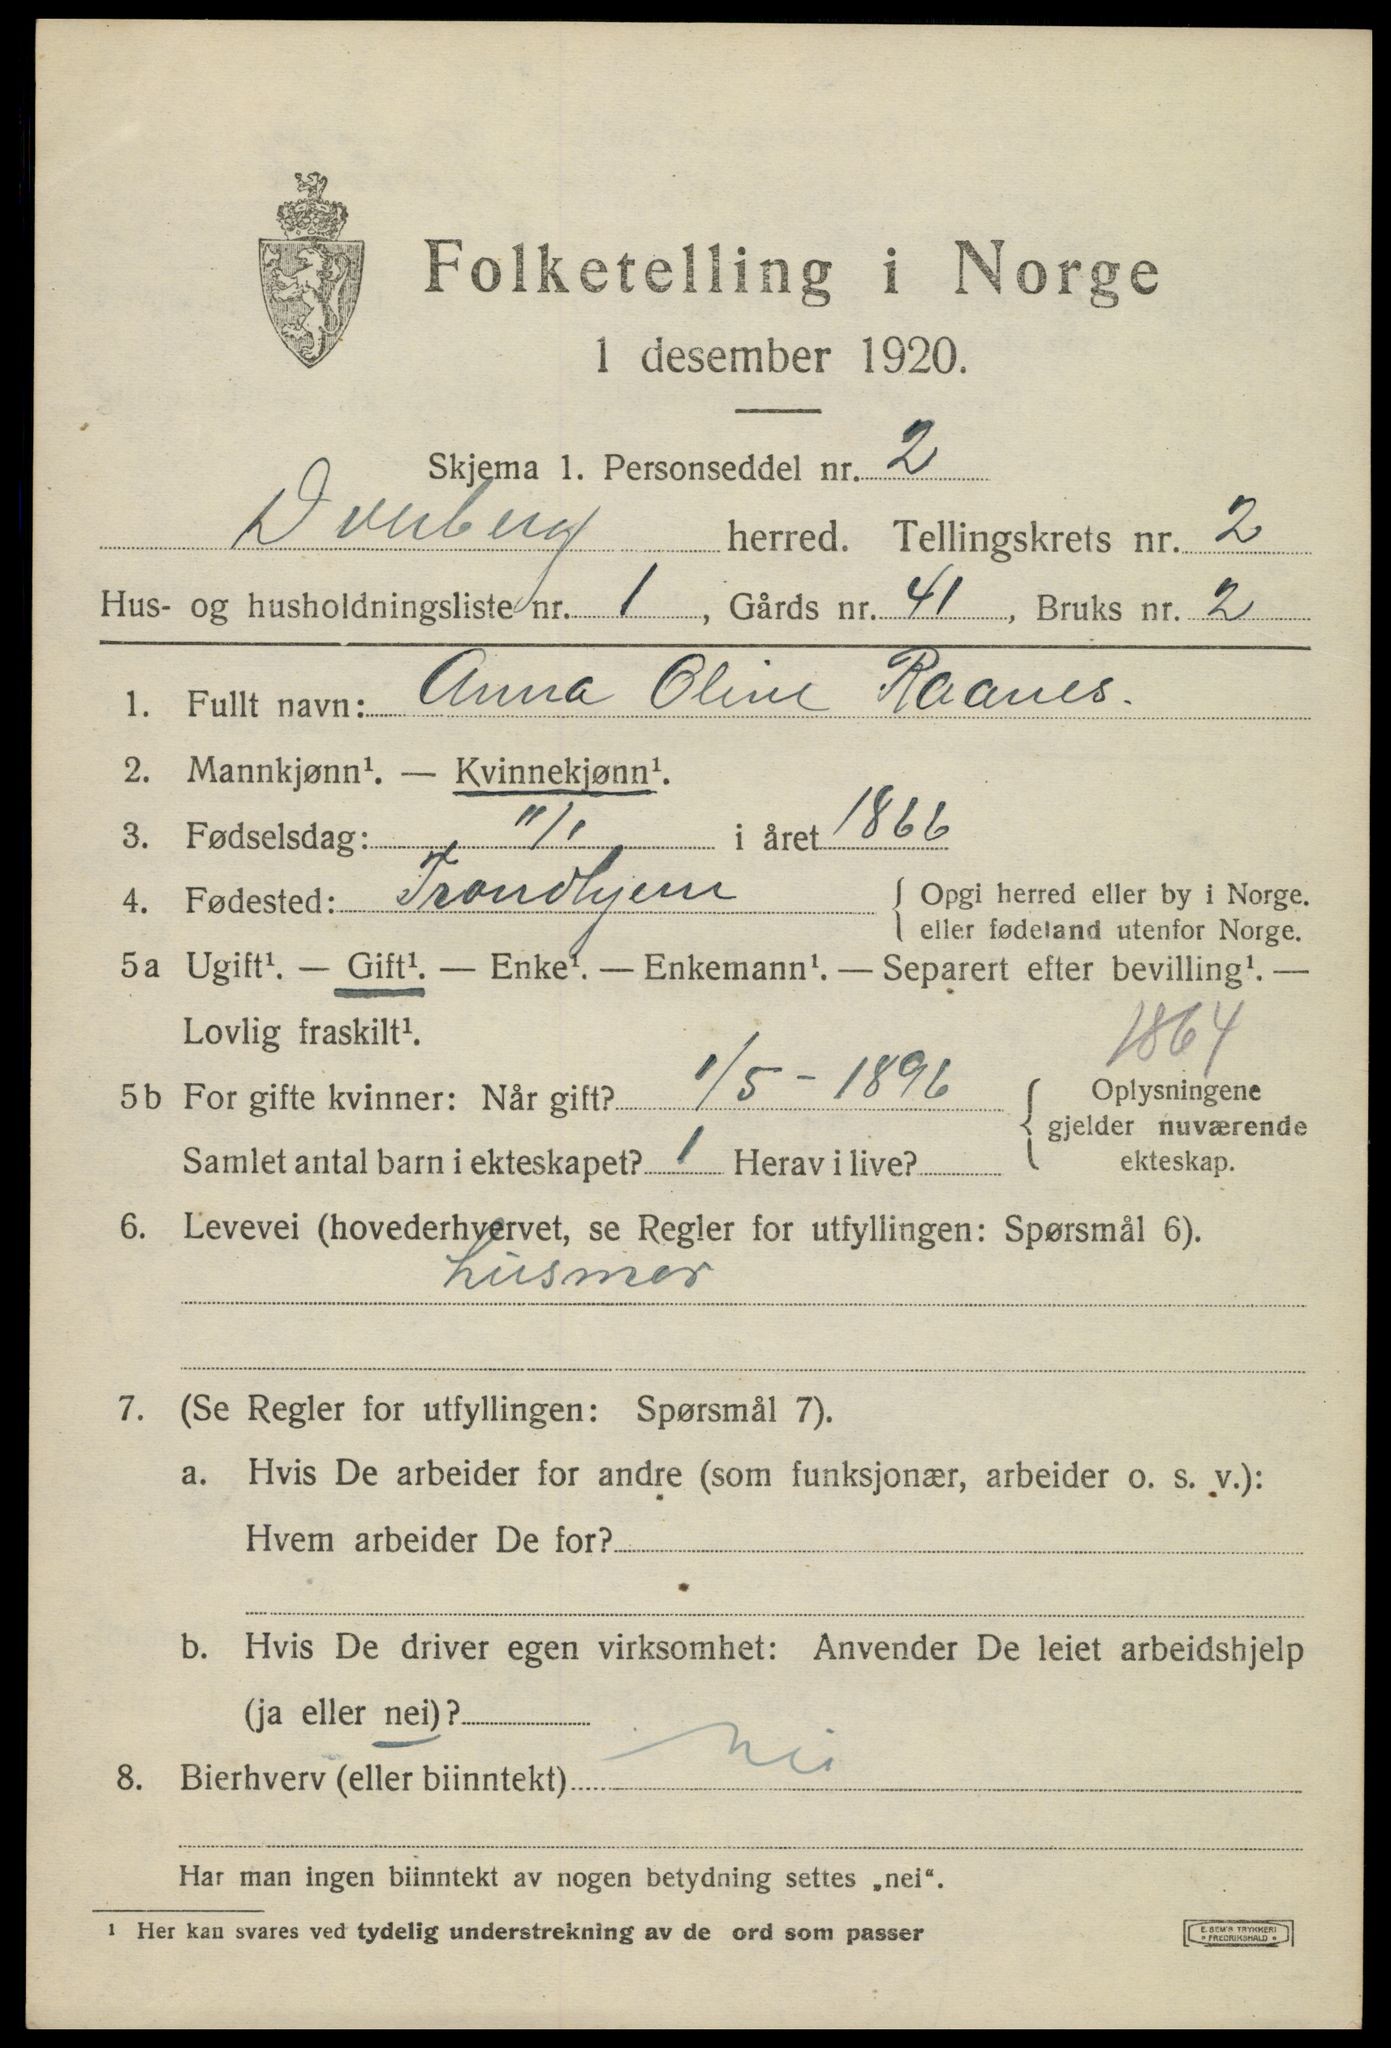 Folketelling i Norge
1 desember 1920.
Skjema 1. Personseddel nr. 2
Dverberg herred. Tellingskrets nr. 2
Hus- og husholdningsliste nr. 1, Gårds nr. 41, Bruks nr. 2
1. Fullt navn: Anna Oline Raanes.
2. Mannkjønn¹. — Kvinnekjønn¹.
3. Fødselsdag: 11/1 i året 1866
4. Fødested: Trondhjem { Opgi herred eller by i Norge.
eller fødeland utenfor Norge.
5a Ugift¹. — Gift¹. — Enke¹. — Enkemann¹. — Separert efter bevilling¹. —
Lovlig fraskilt¹.
1864
5b For gifte kvinner: Når gift? 1/5 - 1896
Samlet antal barn i ekteskapet? 1 Herav i live?
Oplysningene
gjelder nuværende
ekteskap.
6. Levevei (hovederhvervet, se Regler for utfyllingen: Spørsmål 6).
husmor
7. (Se Regler for utfyllingen: Spørsmål 7).
a. Hvis De arbeider for andre (som funksjonær, arbeider o. s. v.):
Hvem arbeider De for?
b. Hvis De driver egen virksomhet: Anvender De leiet arbeidshjelp
(ja eller nei)?
8. Bierhverv (eller biinntekt) Nei
Har man ingen biinntekt av nogen betydning settes „nei“.
¹ Her kan svares ved tydelig understrekning av de ord som passer
E. SEM'S TRYKKERI
FREDRIKSHALD